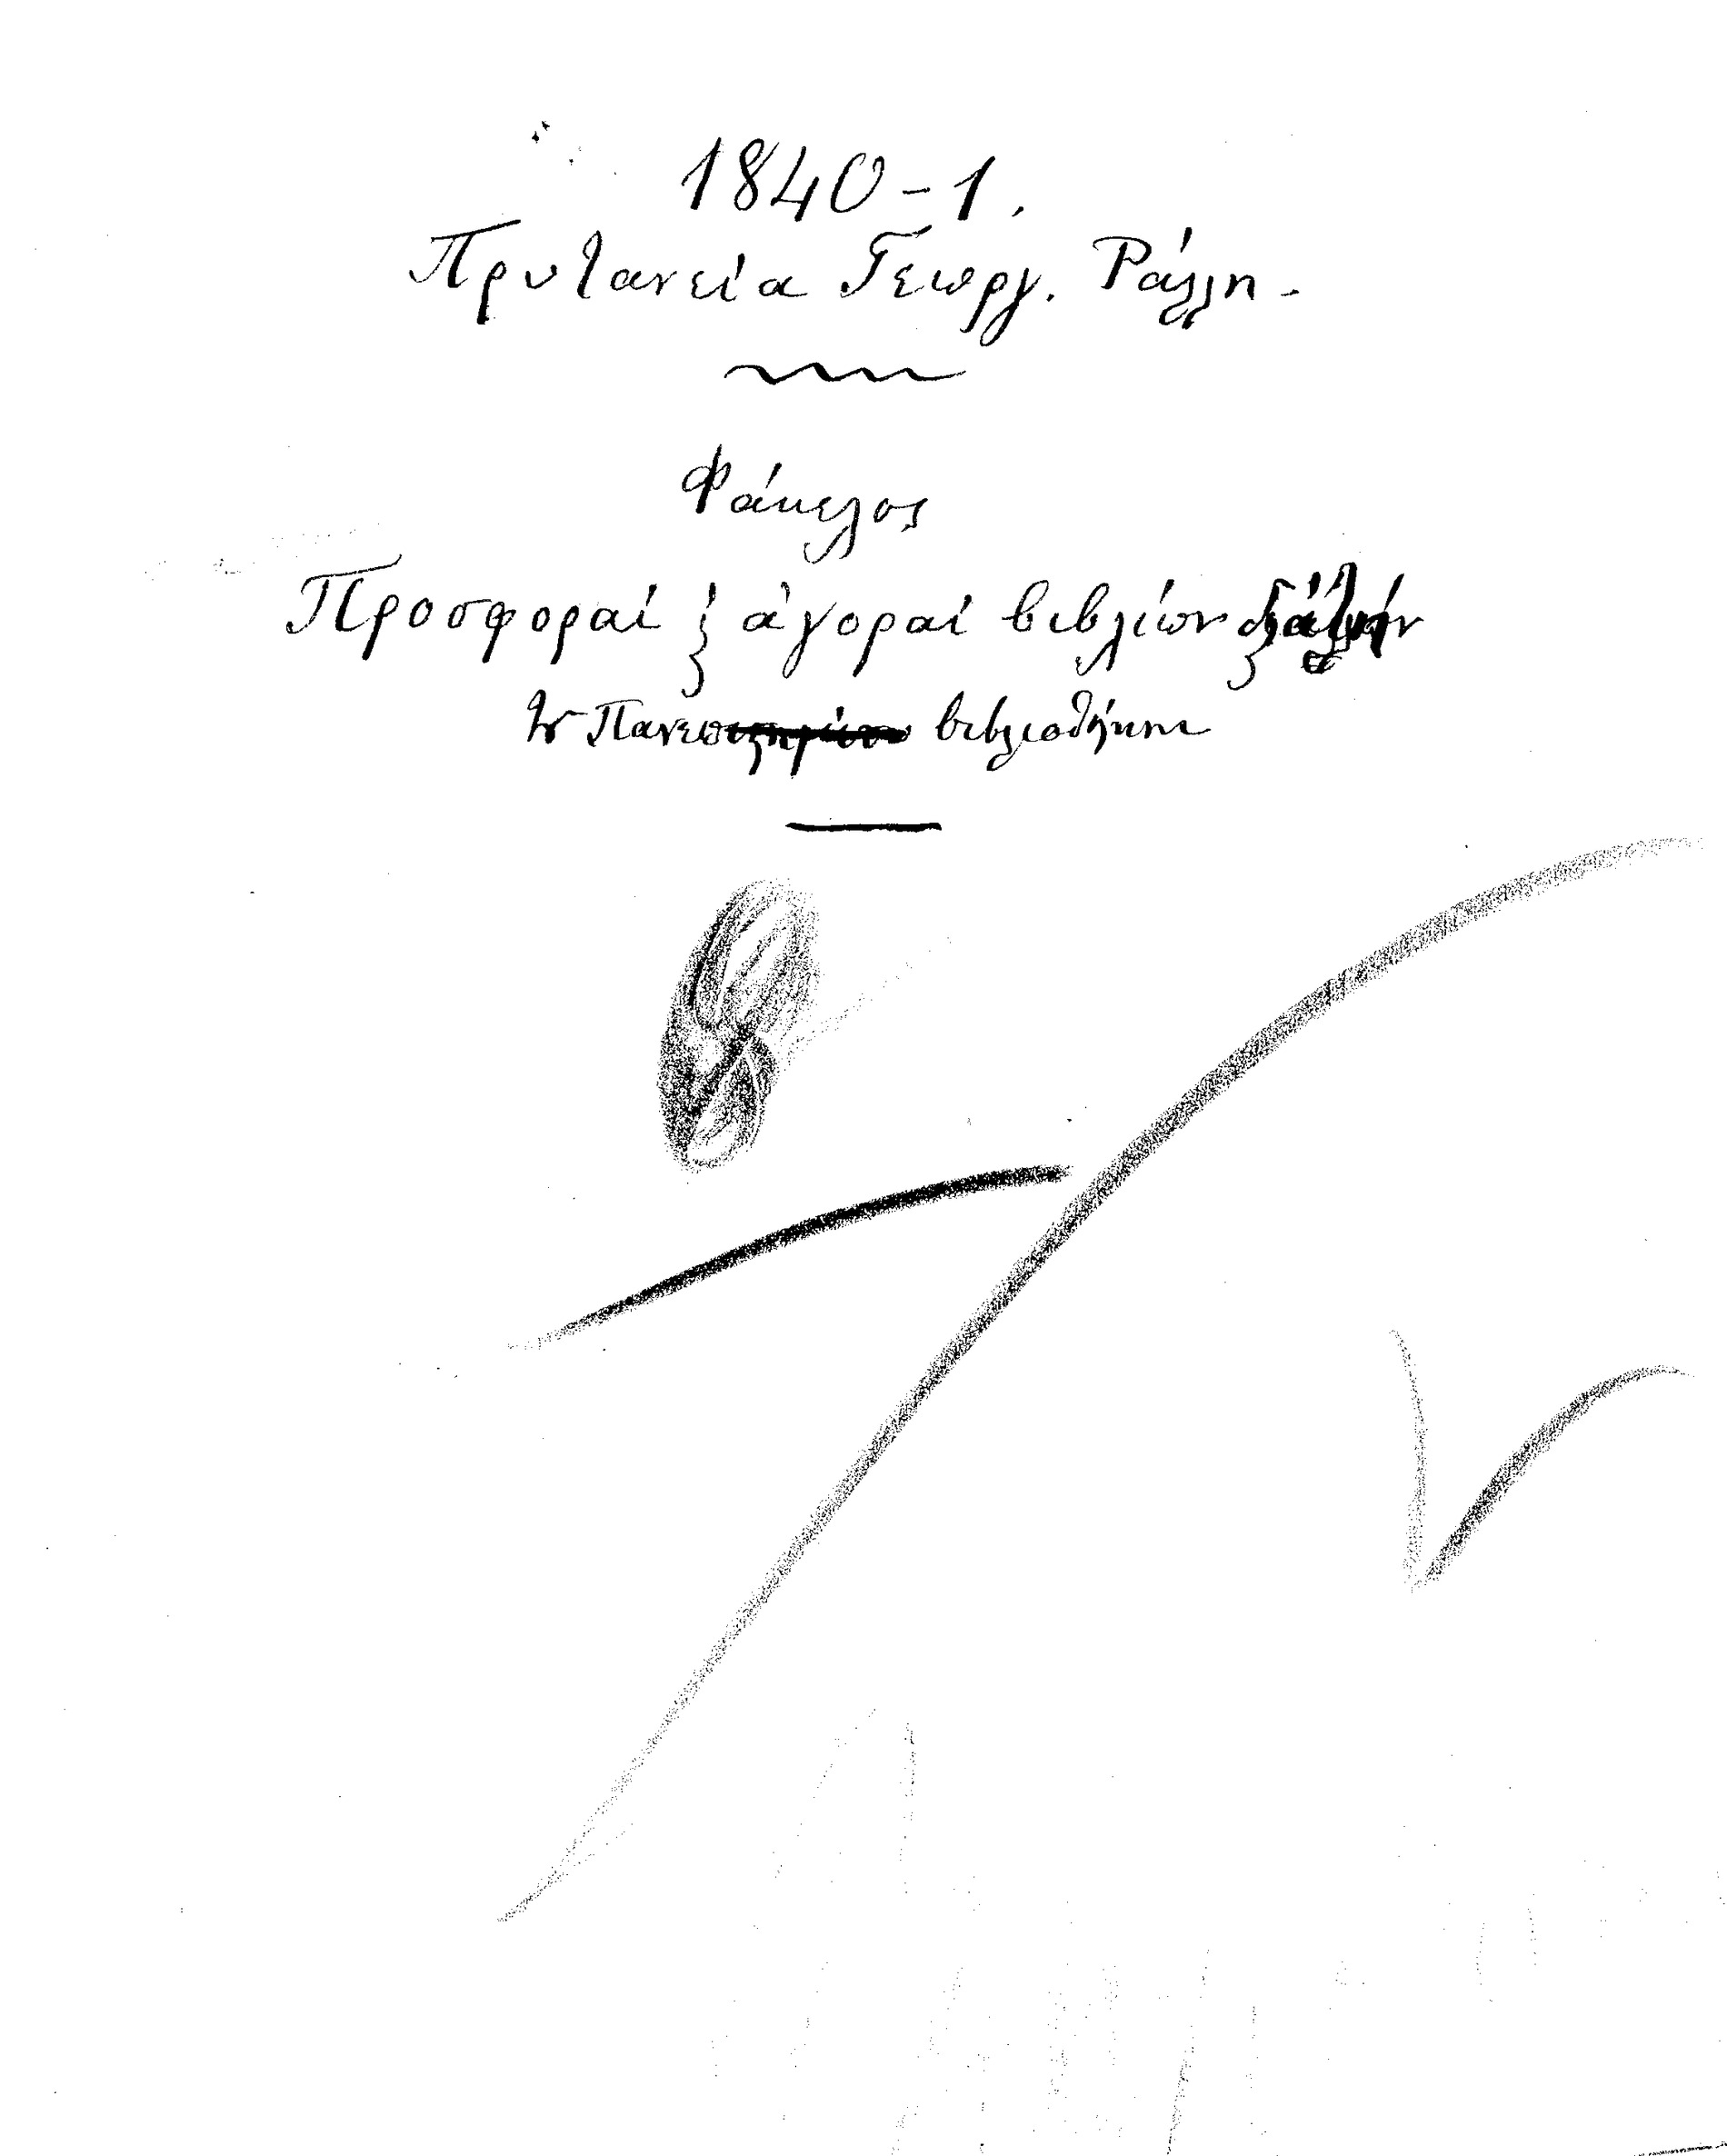 1840-1.
Πρυτανεία Γεωργ. Ράλλη.
Φάκελος
Προσφοραί ϗ ἀγοραί βιβλίων διὰ τὴν
Πανεπιστημίου βιβλιοθήκην